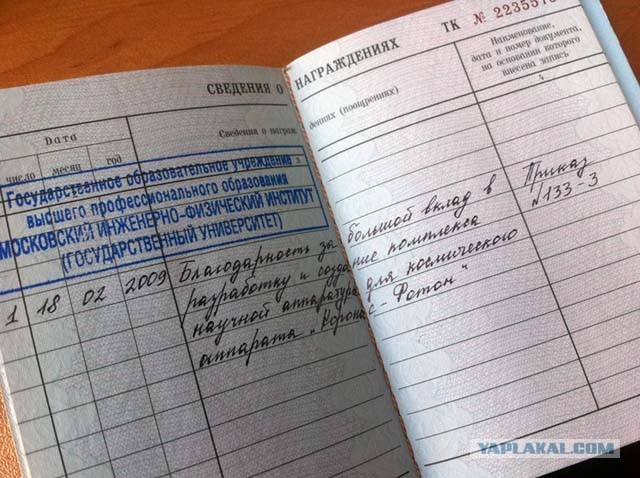 СВЕДЕНИЯ О НАГРАЖДЕНИЯХ
ТК №
Дата
Сведения о награждениях (поощрениях)
Наименование,
дата и номер документа,
на основании которого
внесена запись
число месяц год
3
4
Государственное образовательное учреждение
высшего профессионального образования
МОСКОВСКИЙ ИНЖЕНЕРНО-ФИЗИЧЕСКИЙ ИНСТИТУТ
(ГОСУДАРСТВЕННЫЙ УНИВЕРСИТЕТ)
1 18 02 2009 Благодарность за большой вклад в
разработку и создание комплекса
научной аппаратуры для космического
аппарата „Коронас-Фотон"
Приказ
№133-3
YAPLAKAL.COM